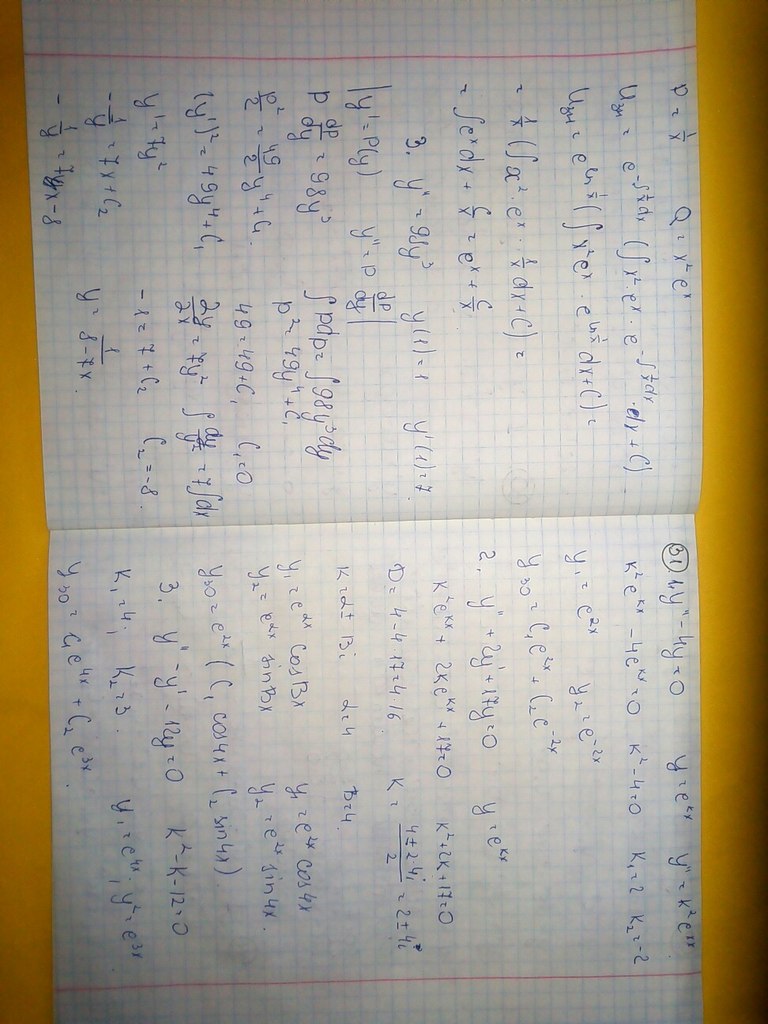 P = 1/x   Q = x²e^x
U_зн = e^(-∫1/x dx) (∫x²·e^x · e^(-∫1/x dx)·dx + C)
U_зн = e^(ln 1/x) (∫x²e^x · e^(ln 1/x) dx + C) =
= 1/x (∫x²·e^x · 1/x dx + C) =
= ∫e^x dx + C/x = e^x + C/x
3. y'' = 98y³   y(1) = 1   y'(1) = 7.
|y' = P(y)   y'' = P dp/dy|
P dp/dy = 98y³   ∫pdp = ∫98y³dy
p²/2 = 49/2 y⁴ + C₁   p² = 49y⁴ + C₁
(y')² = 49y⁴ + C₁   49 = 49 + C₁   C₁ = 0
y' = 7y²   2y/2x = 7y²   ∫dy/y² = 7∫dx
-1/y = 7x + C₂   -1 = 7 + C₂   C₂ = -8.
-1/y = 7x - 8   y = 1/(8-7x).
В1 1. y'' - 4y = 0   y = e^(kx)   y'' = k²e^(kx)
k²e^(kx) - 4e^(kx) = 0   k² - 4 = 0   k₁ = 2   k₂ = -2
y₁ = e^(2x)   y₂ = e^(-2x)
y_зо = C₁e^(2x) + C₂e^(-2x)
2. y'' + 2y' + 17y = 0   y = e^(kx)
k²e^(kx) + 2ke^(kx) + 17 = 0   k² + 2k + 17 = 0
D = 4 - 4·17 = 4·16   k = (4 ± 2·4i)/2 = 2 ± 4i
k = α ± βi   α = 4   β = 4.
y₁ = e^(αx) cosβx   y₁ = e^(2x) cos4x
y₂ = e^(αx) sinβx   y₂ = e^(2x) sin4x.
y_зо = e^(2x) (C₁ cos4x + C₂ sin4x)
3. y'' - y' - 12y = 0   k² - k - 12 = 0
k₁ = 4; k₂ = 3.   y₁ = e^(4x); y² = e^(3x)
y_зо = C₁e^(4x) + C₂e^(3x).